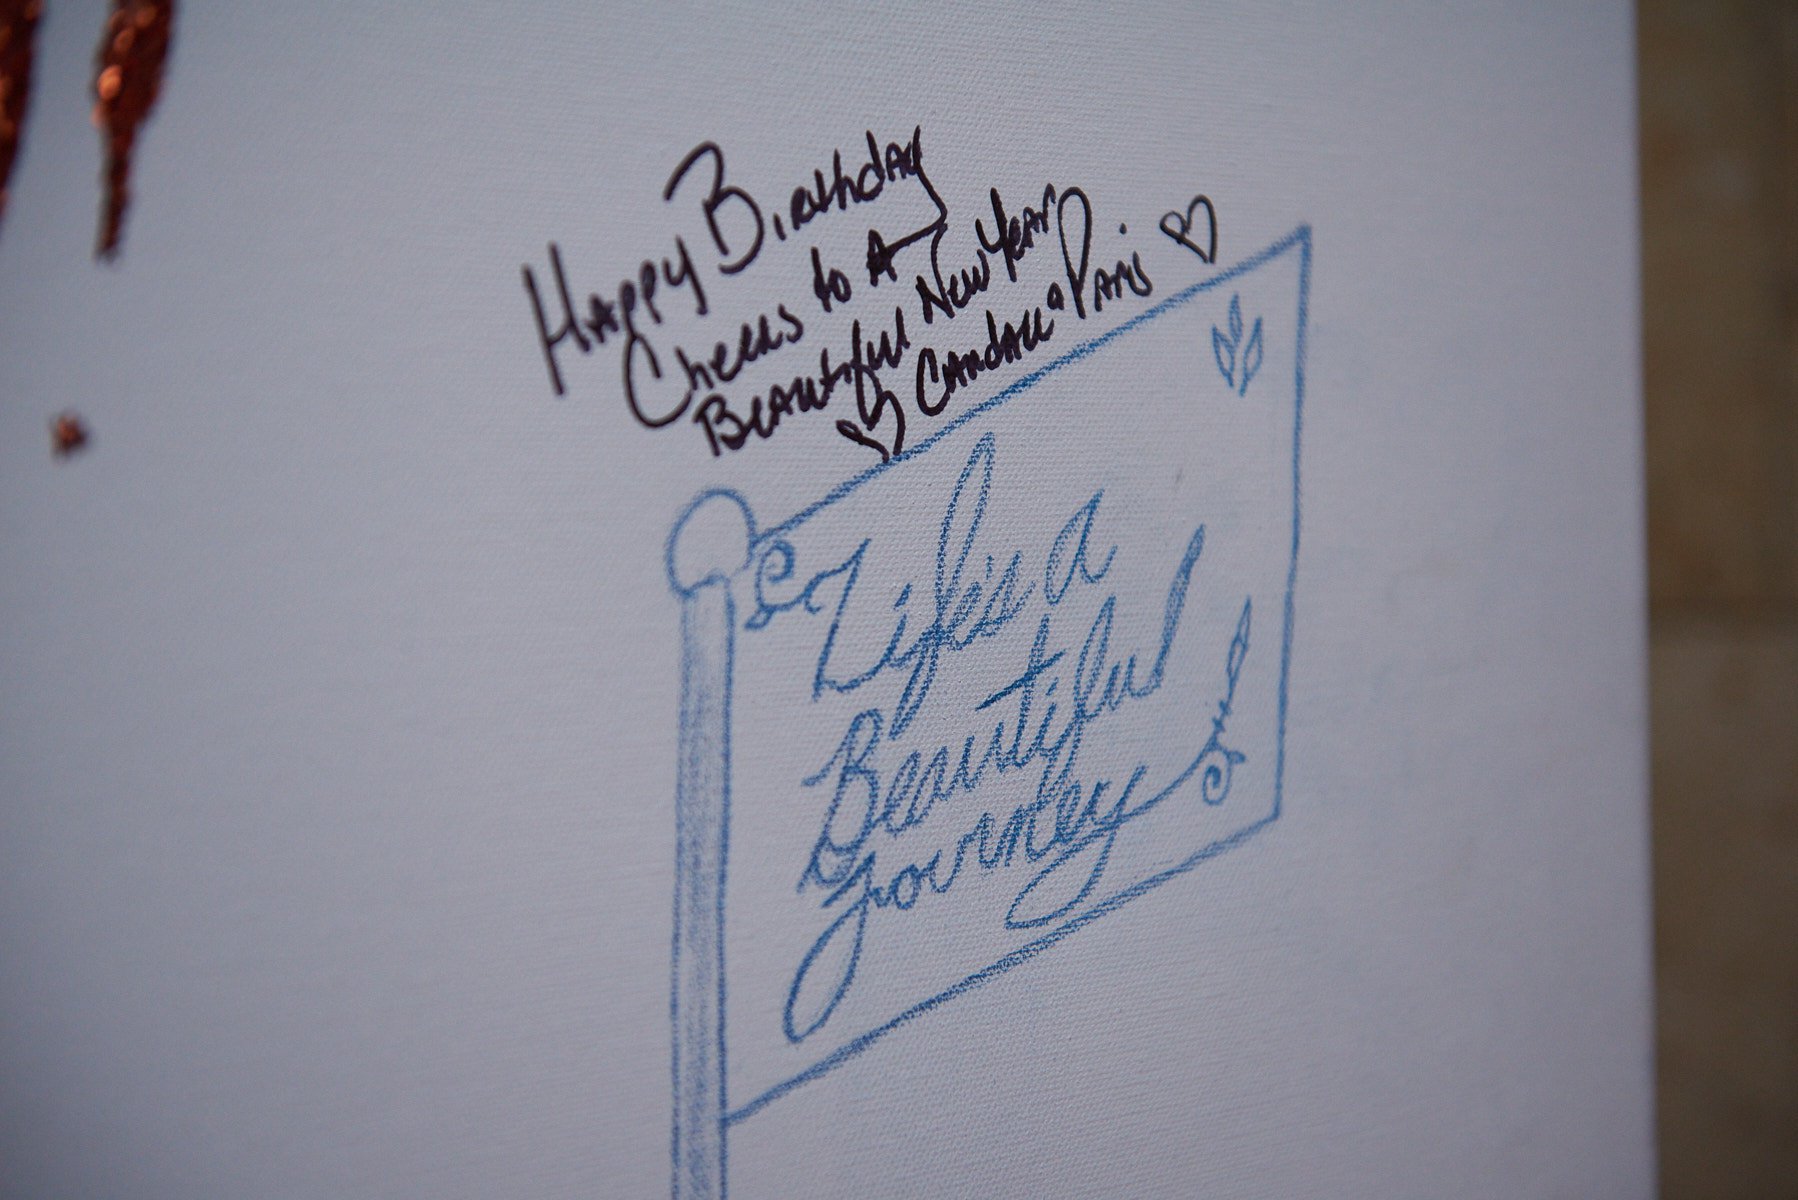 Happy Birthday
Cheers to A
Beautiful New Year
Paris
Life's a
Beautiful
Journey